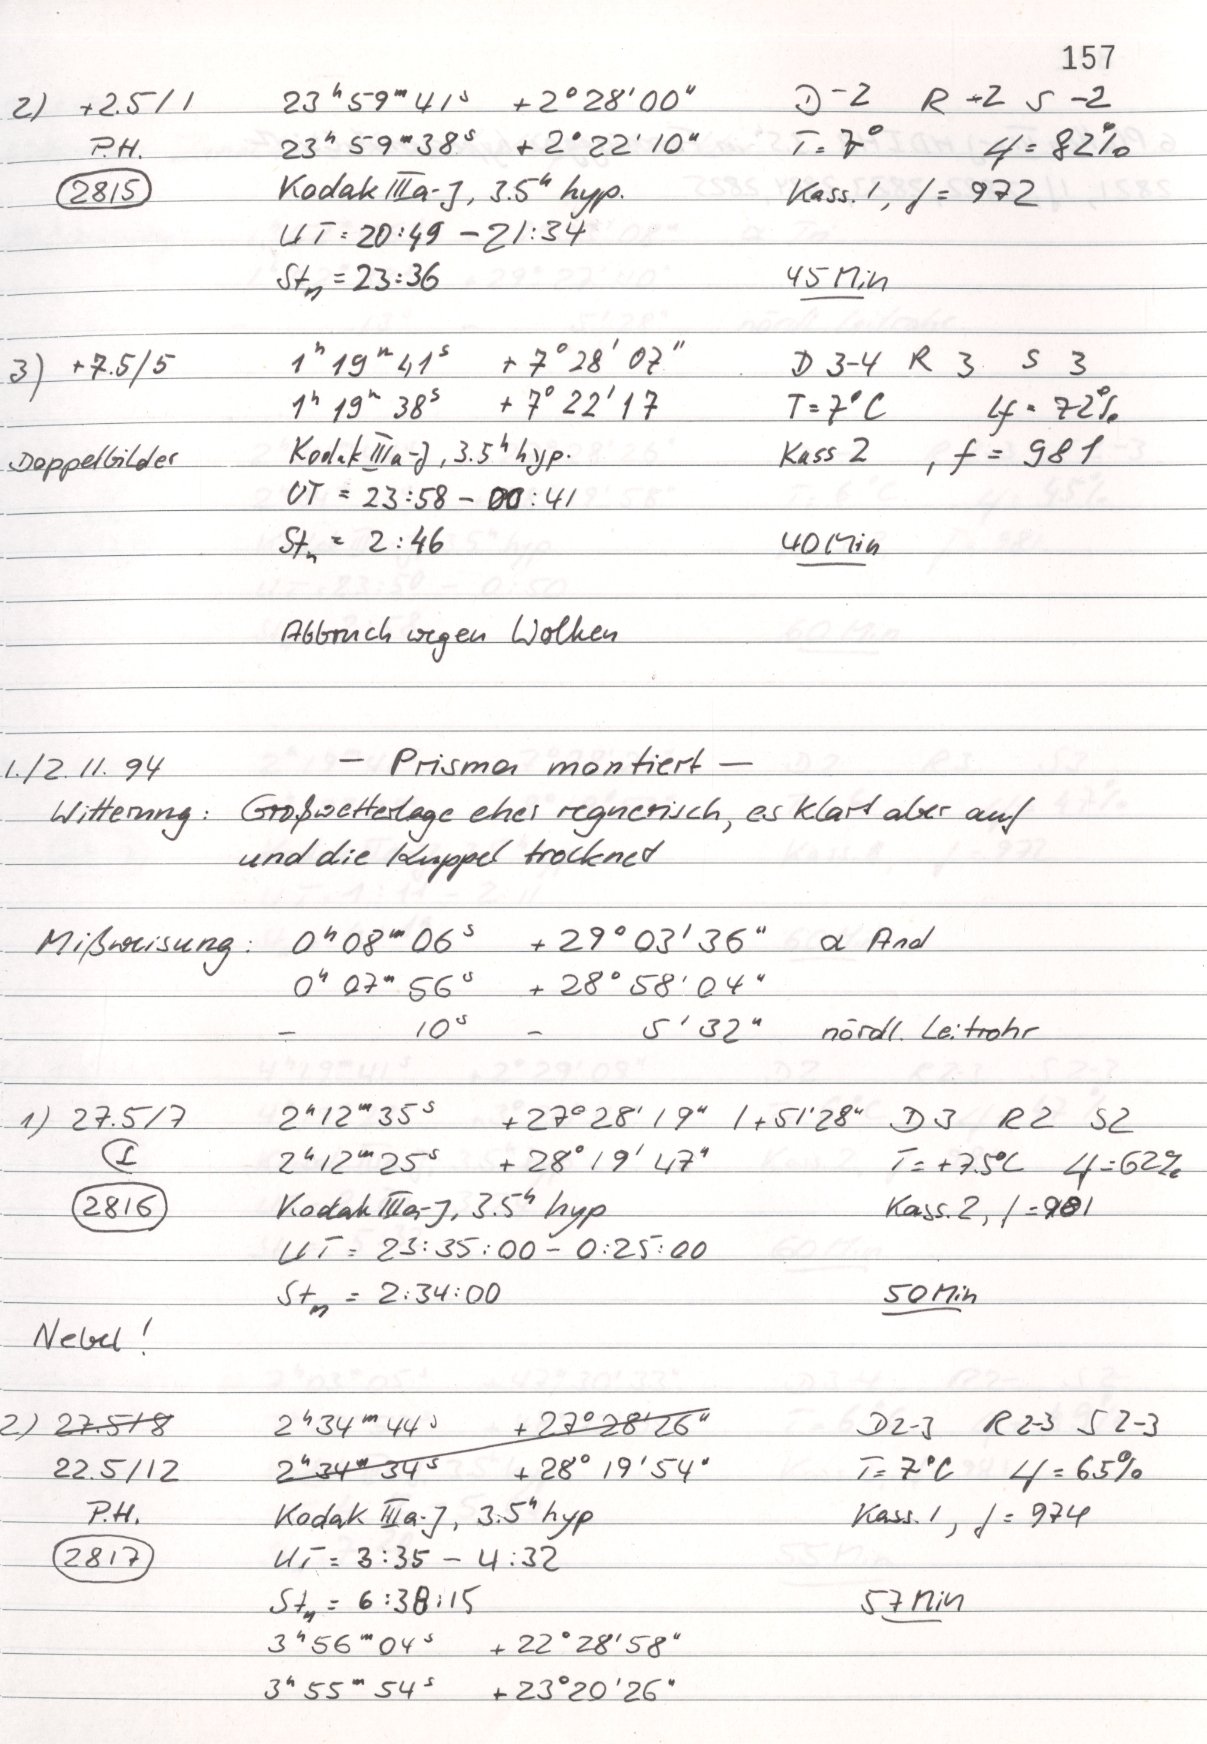 157
2) +2.5/1 23ʰ59ᵐ41ˢ +2°28'00" D-2 R-2 S-2
P.H. 23ʰ59ᵐ38ˢ +2°22'10" T=7° Lf=82%
2815 Kodak IIIa-J, 3.5ʰ hyp. Kass. 1, f=972
UT=20:49 - 21:34
Stₙ=23:36 45 Min
3) +7.5/5 1ʰ19ᵐ41ˢ +7°28'07" D 3-4 R 3 S 3
1ʰ19ᵐ38ˢ +7°22'17 T=7°C Lf=72%
Doppelbilder Kodak IIIa-J, 3.5ʰ hyp. Kass 2, f=981
UT = 23:58 - 00:41
Stₙ = 2:46 40 Min
Abbruch wegen Wolken
1./2.11.94 - Prisma montiert -
Witterung: Großwetterlage eher regnerisch, es klart aber auf
und die Kuppel trocknet
Mißweisung: 0ʰ08ᵐ06ˢ +29°03'36" α And
0ʰ07ᵐ56ˢ +28°58'04"
- 10ˢ - 5'32" nördl. Leitrohr
1) 27.5/7 2ʰ12ᵐ35ˢ +27°28'19" /+51'28" D3 R2 S2
I 2ʰ12ᵐ25ˢ +28°19'47" T=+7.5°C Lf=62%
2816 Kodak IIIa-J, 3.5ʰ hyp Kass. 2, f=981
UT = 23:35:00 - 0:25:00
Stₙ = 2:34:00 50 Min
Nebel!
2) 27.5/8 2ʰ34ᵐ44ˢ +27°28'26" D2-3 R2-3 S2-3
22.5/12 2ʰ34ᵐ34ˢ +28°19'54" T=7°C Lf=65%
P.H. Kodak IIIa-J, 3.5ʰ hyp Kass. 1, f=974
2817 UT=3:35 - 4:32
Stₙ = 6:38:15 57 Min
3ʰ56ᵐ04ˢ +22°28'58"
3ʰ55ᵐ54ˢ +23°20'26"